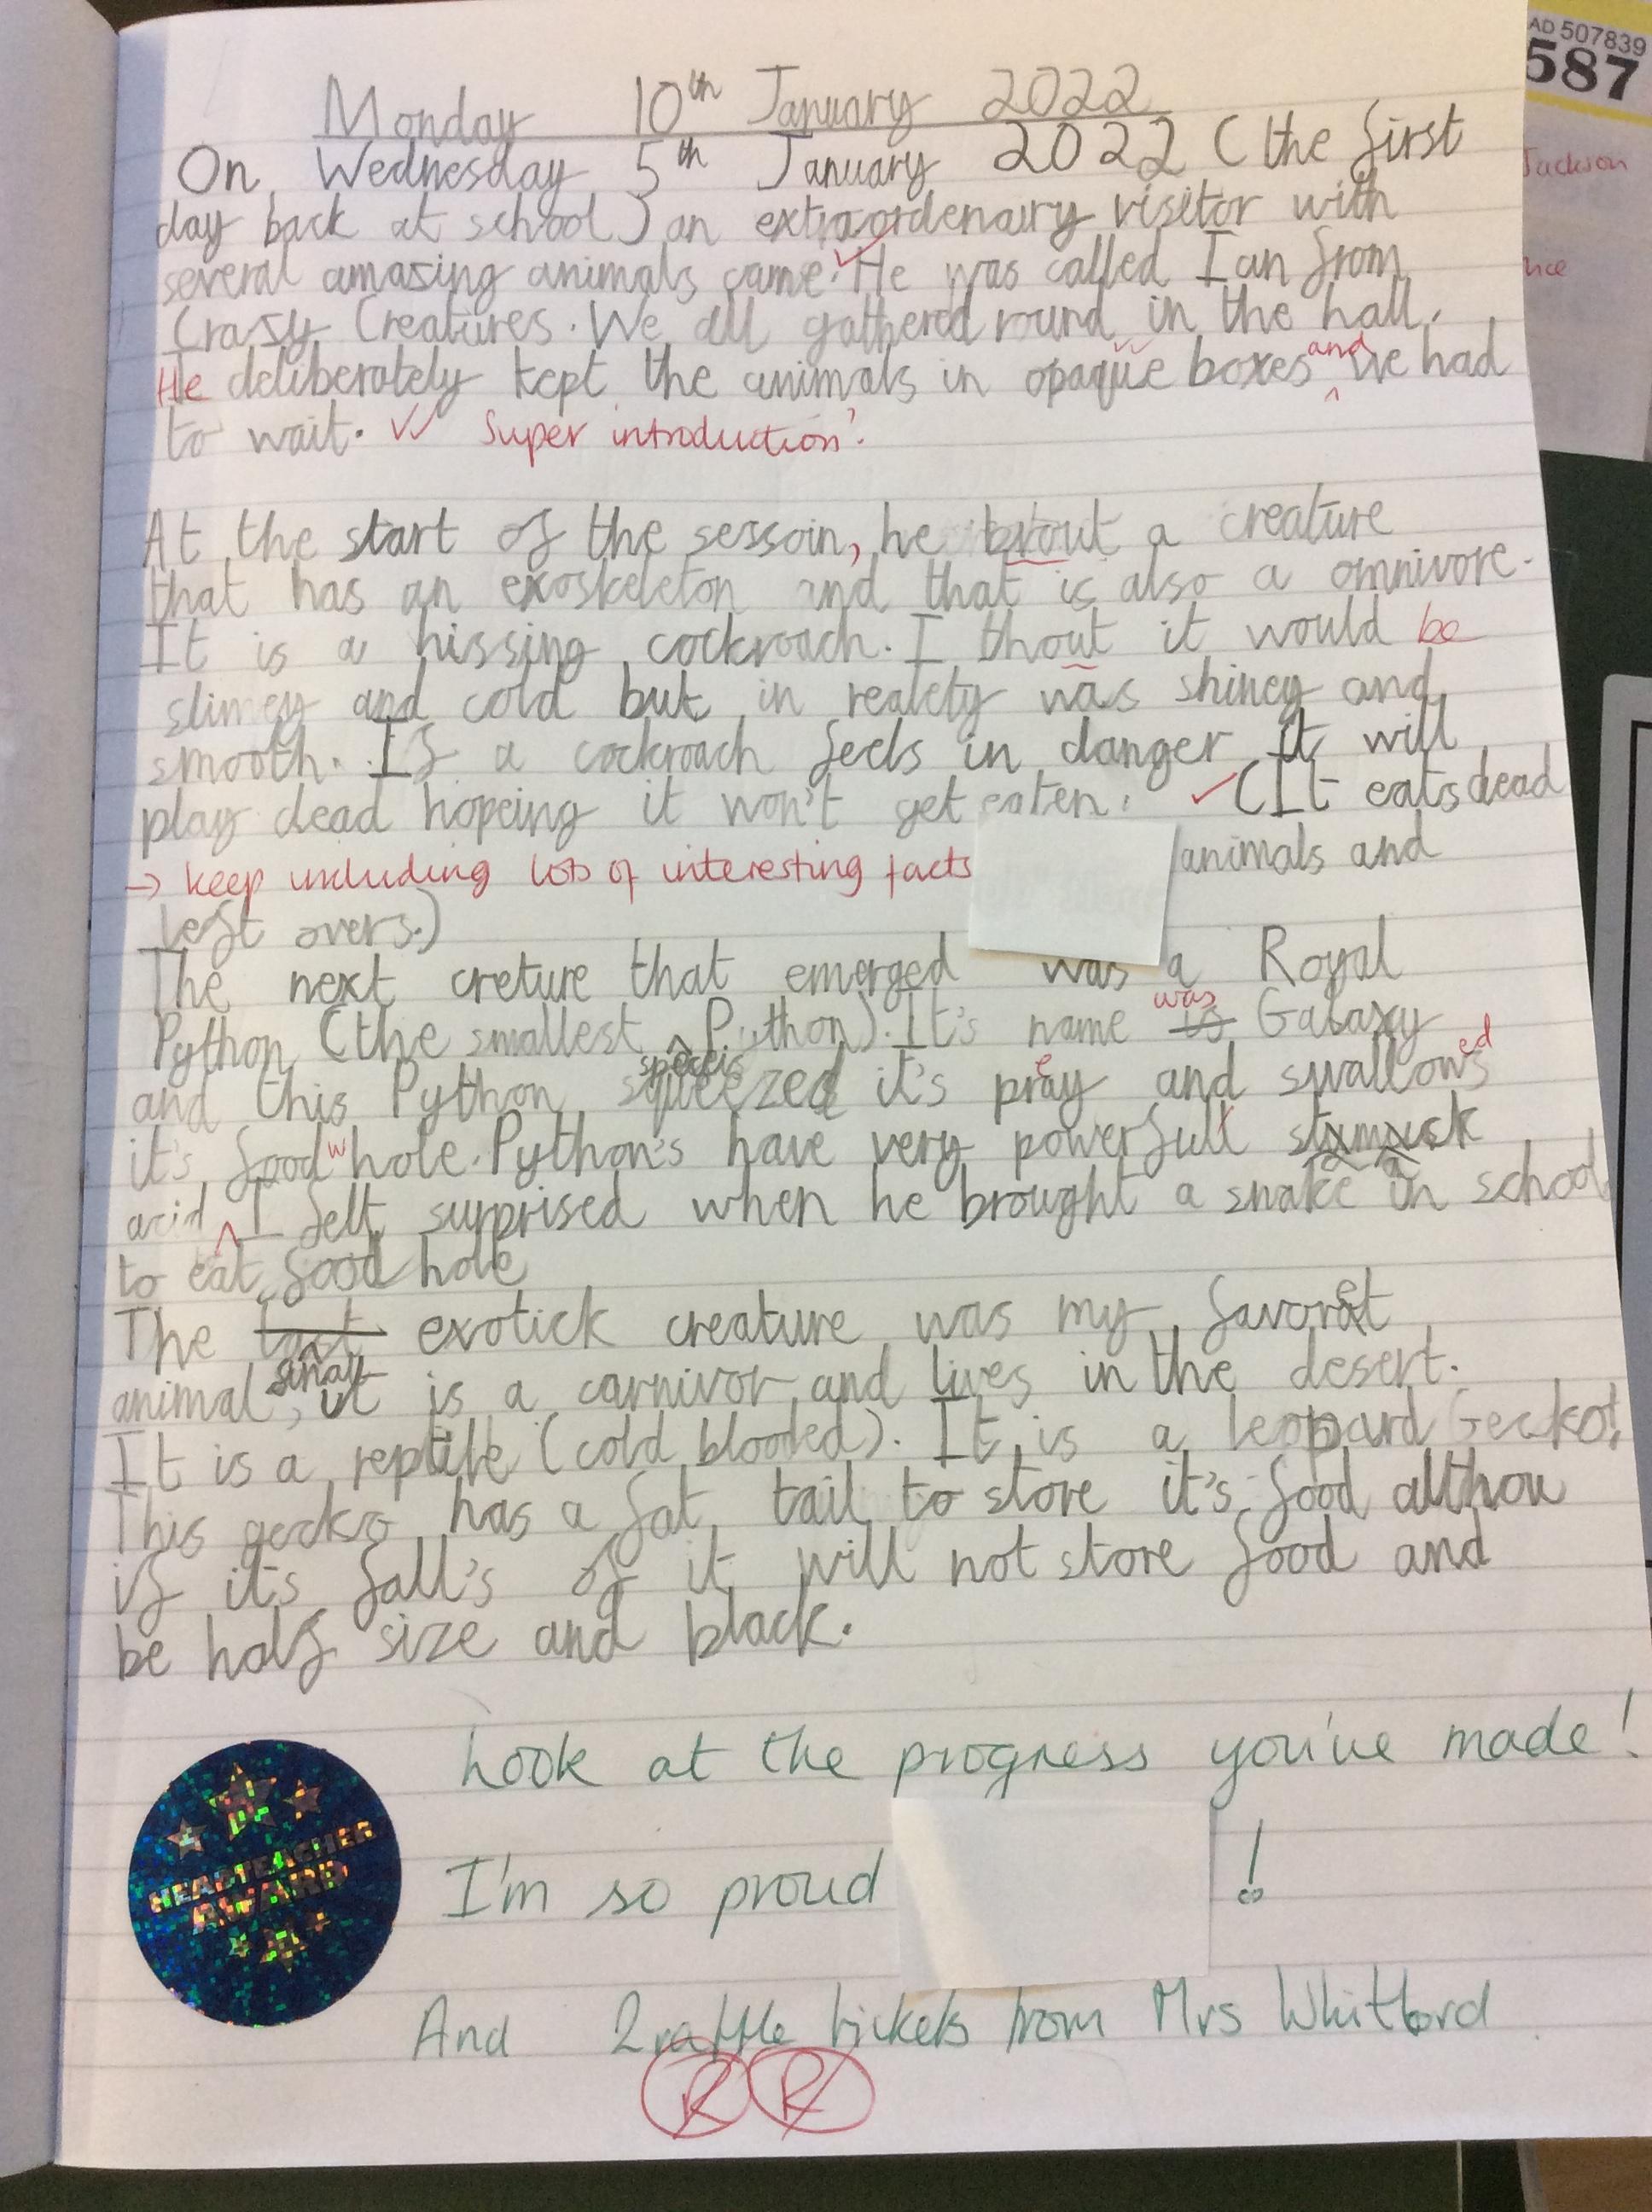 AD 507839
587
Jackson
Monday 10th January 2022
On Wednesday 5th January 2022 (the first
day back at school) an extraordenairy visitor with
several amazing animals came. He was called Ian from
Crazy Creatures. We all gathered round in the hall.
He deliberately kept the animals in opaque boxes and we had
to wait. Super introduction!
At the start of the sessoin, he brout a creature
that has an exoskeleton and that is also a omnivore.
It is a hissing cockroach. I thout it would be
slimey and cold but in realety was shiney and
smooth. If a cockroach feels in danger it will
play dead hopeing it won't get eaten. (It eats dead
→ keep including lots of interesting facts animals and
left overs.)
The next creture that emerged was a Royal
Python (the smallest speceis Python). It's name is was Galaxy
and this Python squeezed it's prey and swallowed
it's food whole. Python's have very powerfull
acid I felt surprised when he brought a snake in school
to eat food hole
The last small exotick creature was my favoret
animal, it is a carnivor and lives in the desert.
It is a reptile (cold blooded). It is a leopard Gecko!
This gecko has a fat tail to store it's food althou
if it's fall's of it will not store food and
be half size and black.
Look at the progress you've made!
HEADTEACHER
AWARD
I'm so proud !
And 2 raffle tickets from Mrs Whitford
R R